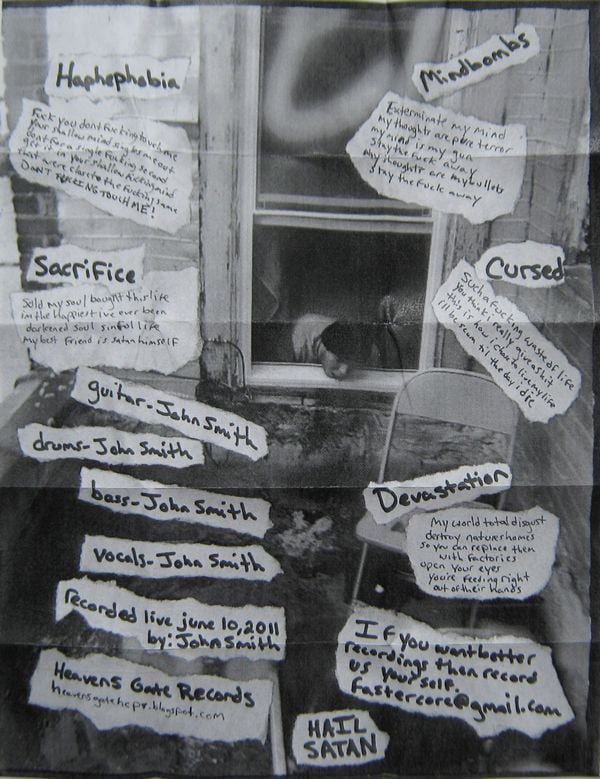 Haphephobia
Fuck you dont fucking touch me
Your shallow mind singles me out
dont for a single fucking second
get it in your shallow fucking mind
that were close to the fuckin same
DONT FUCKING TOUCH ME!
Sacrifice
Sold my soul bought this life
im the happiest ive ever been
darkened soul sinful life
my best friend is satan himself
guitar-John Smith
drums-John Smith
bass-John Smith
vocals-John Smith
recorded live june 10, 2011
by: John Smith
Heavens Gate Records
heavensgatehcpv.blogspot.com
Mindbombs
Exterminate my mind
my thoughts are pure terror
my mind is my gun
Stay the fuck away
My thoughts are my bullets
stay the fuck away
Cursed
Such a fucking waste of life
You think i really give a shit
this is how i chose to live my life
i'll be scum til the day i die
Devastation
My world total disgust
destroy natures homes
so you can replace them
with factories
open your eyes
you're feeding right
out of their hands
If you want better
recordings then record
us your self.
fastercore@gmail.com
HAIL
SATAN